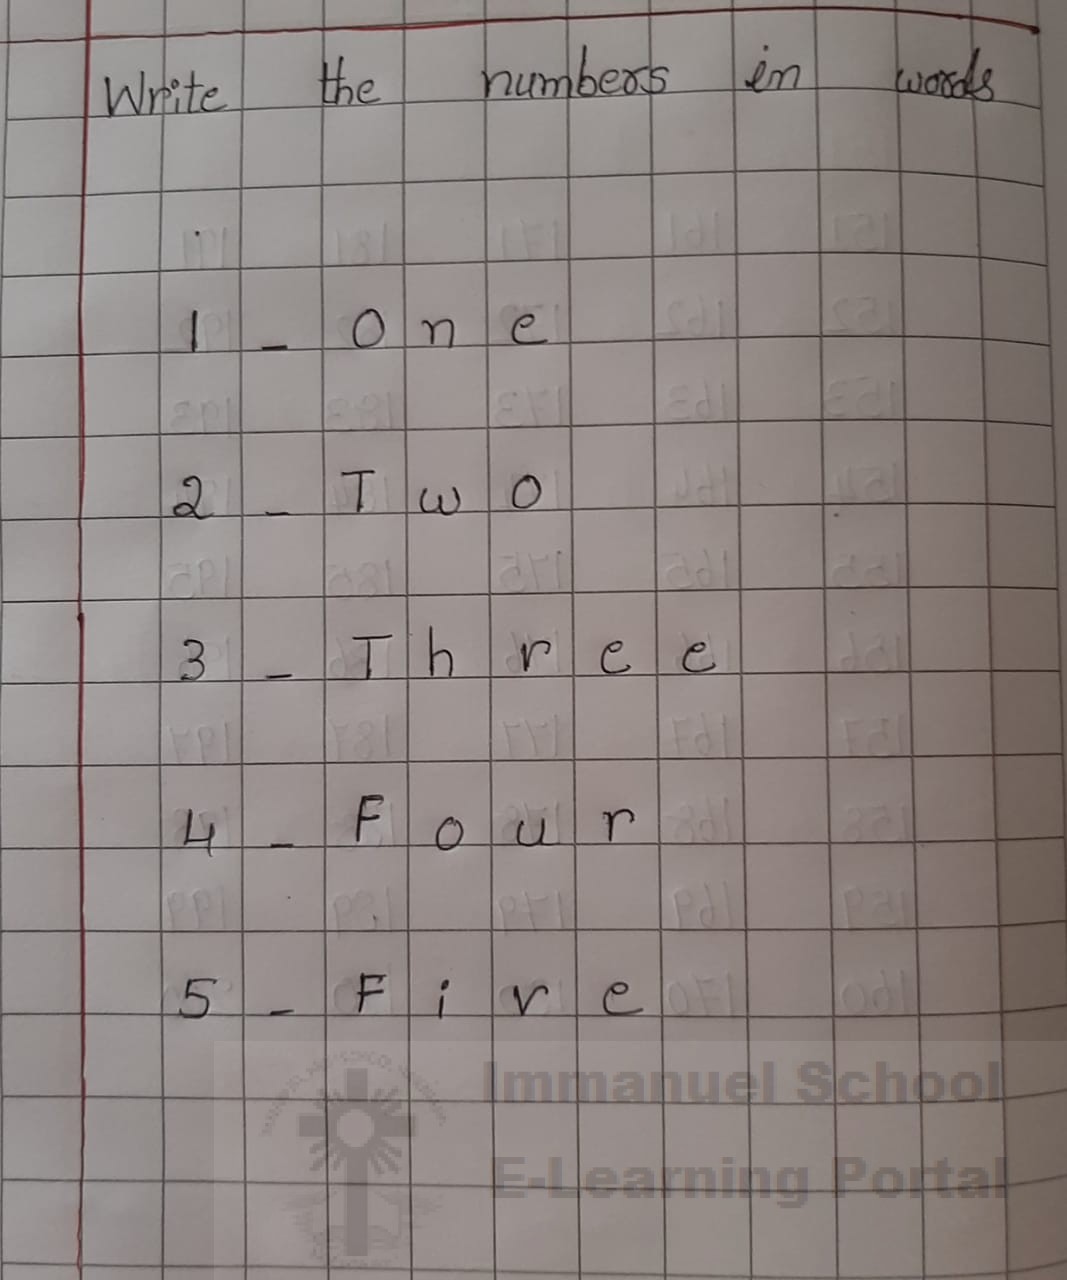 Write the numbers in words
1 - One
2 - Two
3 - Three
4 - Four
5 - Five
Immanuel School
E-Learning Portal